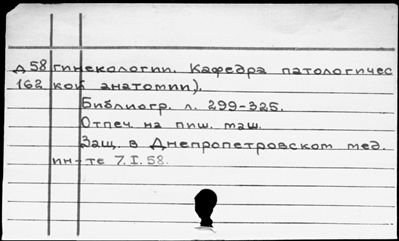 Д58 гинекологии. Кафедра патологичес
162 кой анатомии).
Библиогр. л. 299-325.
Отпеч. на пиш. маш.
Защ. в Днепропетровском мед.
ин-те 7.I.58.